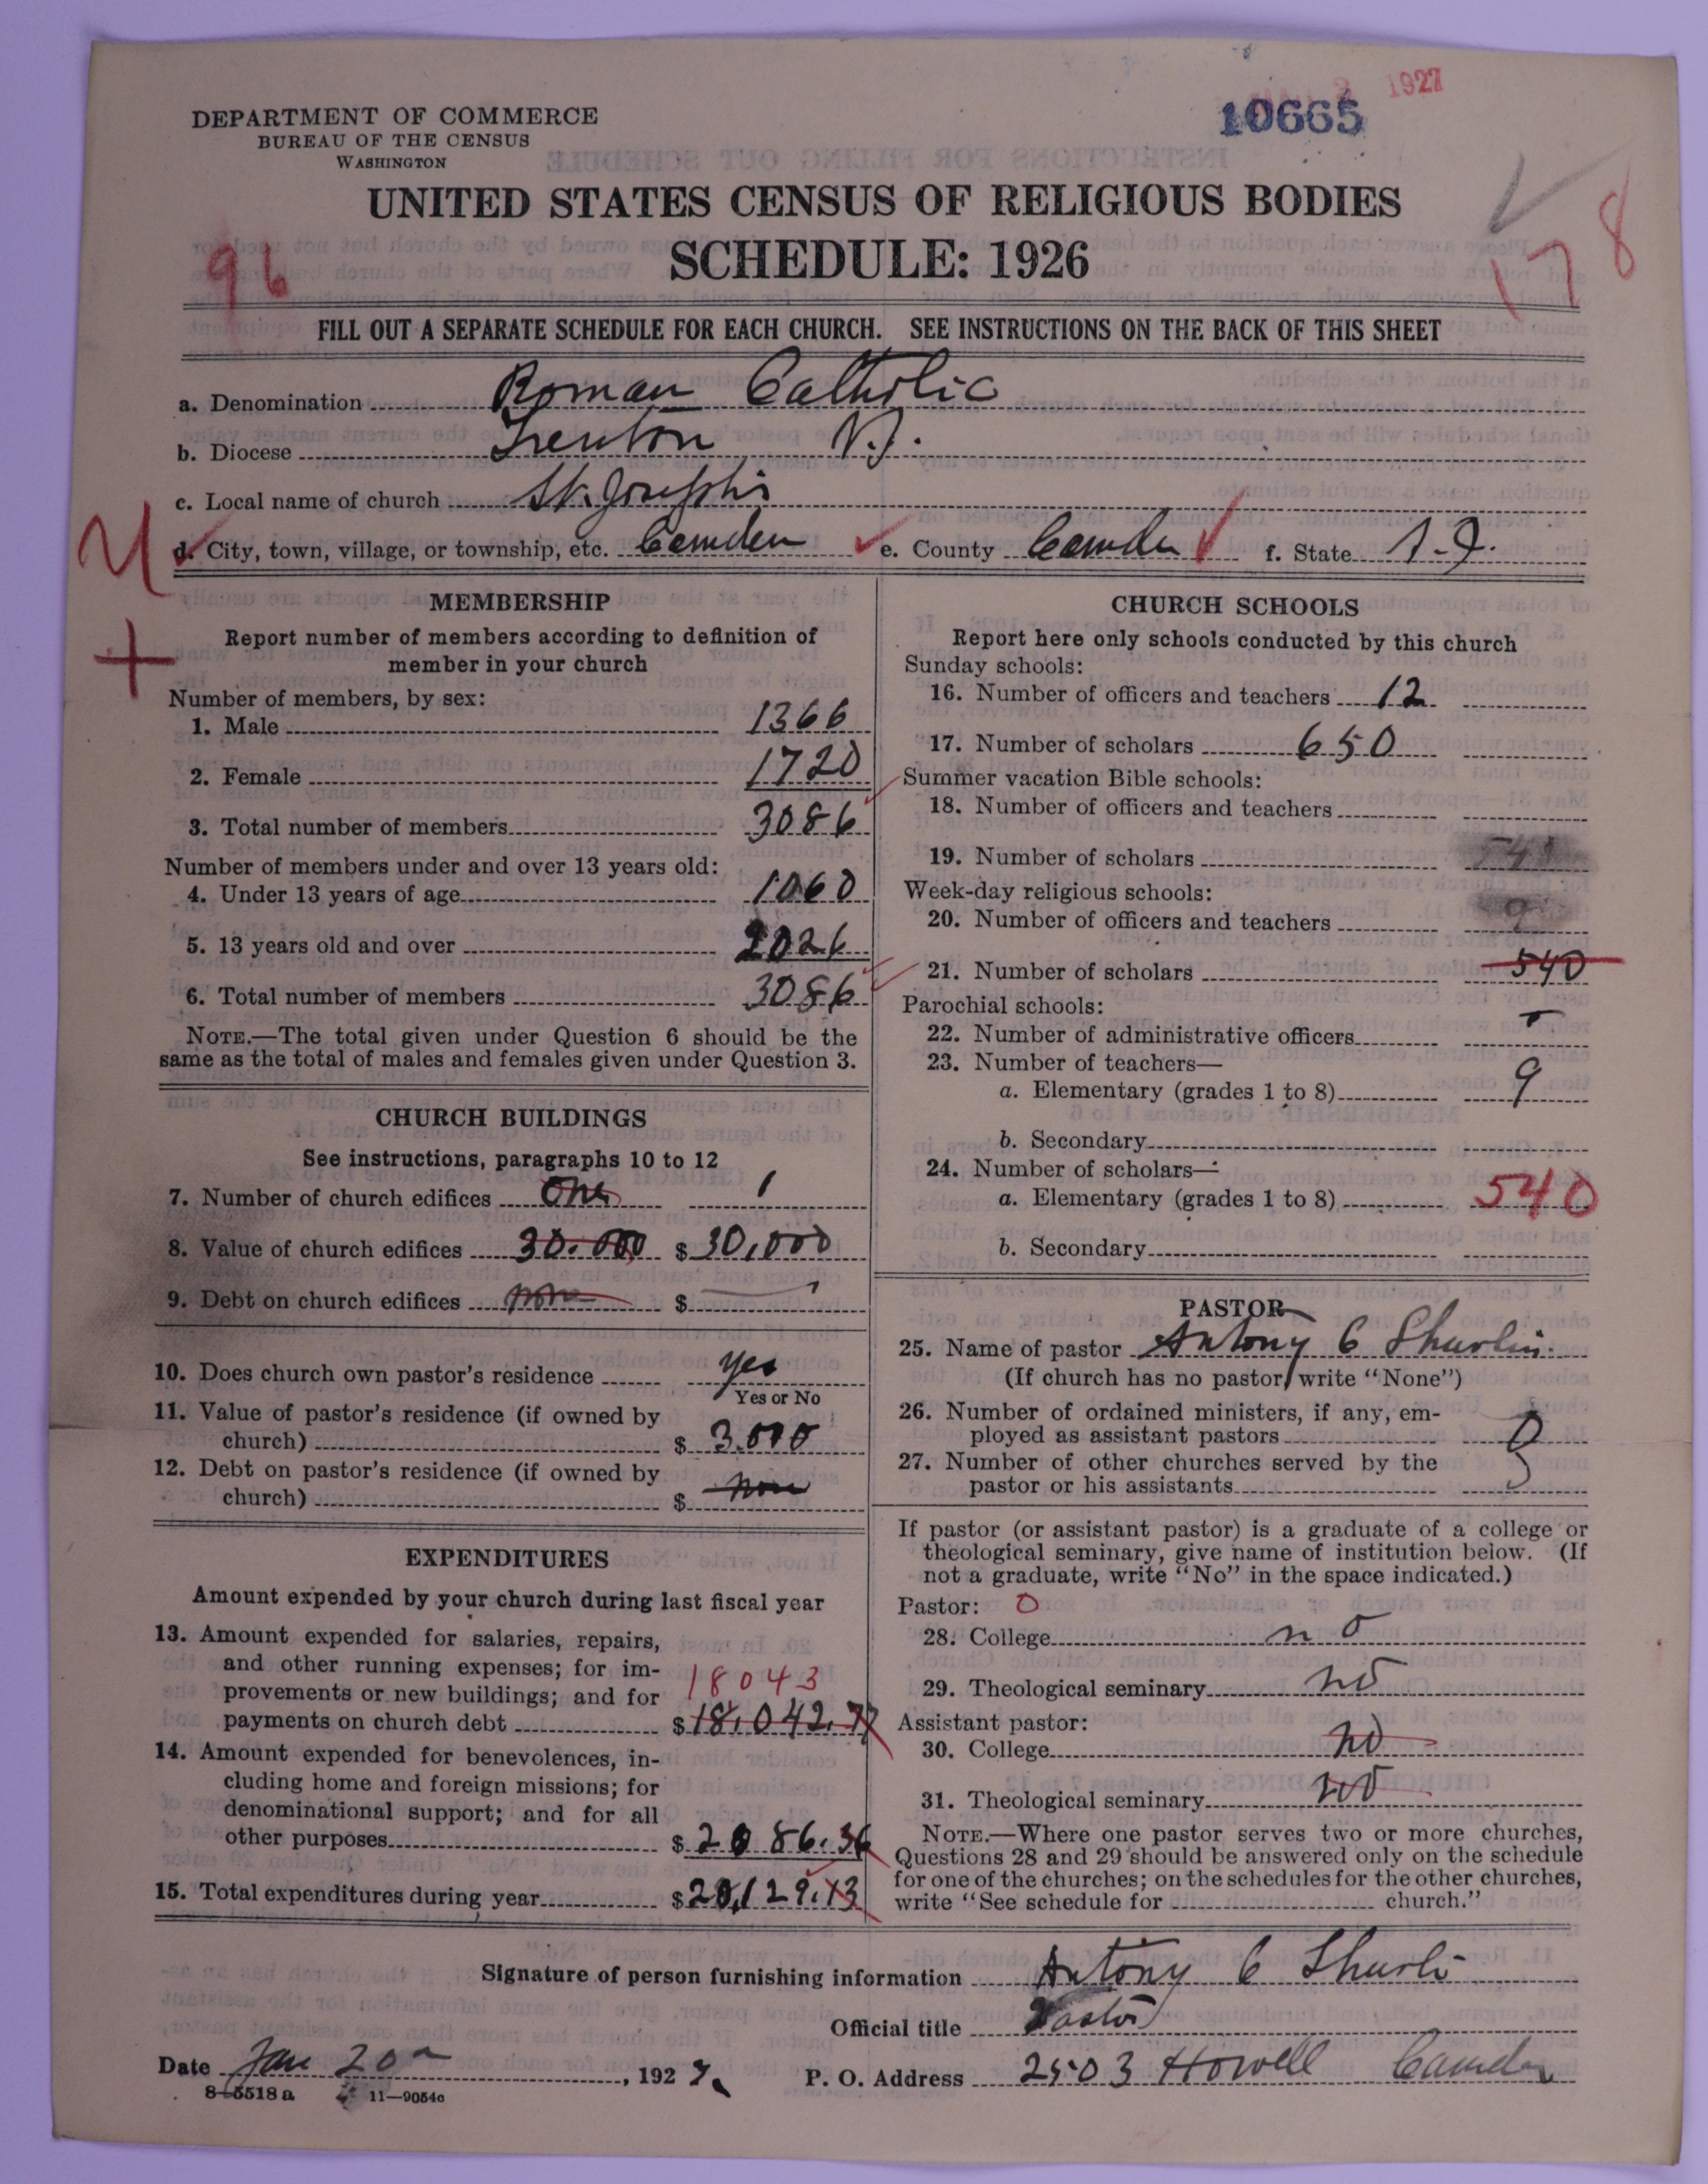 1927
10665
DEPARTMENT OF COMMERCE
BUREAU OF THE CENSUS
WASHINGTON
UNITED STATES CENSUS OF RELIGIOUS BODIES
SCHEDULE: 1926
96
178
FILL OUT A SEPARATE SCHEDULE FOR EACH CHURCH. SEE INSTRUCTIONS ON THE BACK OF THIS SHEET
a. Denomination Roman Catholic
b. Diocese Trenton N.J.
c. Local name of church St. Josephs
d. City, town, village, or township, etc. Camden e. County Camden f. State N.J.
MEMBERSHIP
Report number of members according to definition of
member in your church
Number of members, by sex:
1. Male 1366
2. Female 1720
3. Total number of members 3086
Number of members under and over 13 years old:
4. Under 13 years of age 1060
5. 13 years old and over 2026
6. Total number of members 3086
NOTE.—The total given under Question 6 should be the
same as the total of males and females given under Question 3.
CHURCH BUILDINGS
See instructions, paragraphs 10 to 12
7. Number of church edifices One 1
8. Value of church edifices 30.000 $ 30,000
9. Debt on church edifices none $
10. Does church own pastor's residence yes
Yes or No
11. Value of pastor's residence (if owned by
church) $ 3.000
12. Debt on pastor's residence (if owned by
church) $ none
EXPENDITURES
Amount expended by your church during last fiscal year
13. Amount expended for salaries, repairs,
and other running expenses; for im-
provements or new buildings; and for 18043
payments on church debt $ 18,042.77
14. Amount expended for benevolences, in-
cluding home and foreign missions; for
denominational support; and for all
other purposes $ 2086.36
15. Total expenditures during year $ 20,129.13
CHURCH SCHOOLS
Report here only schools conducted by this church
Sunday schools:
16. Number of officers and teachers 12
17. Number of scholars 650
Summer vacation Bible schools:
18. Number of officers and teachers
19. Number of scholars
Week-day religious schools:
20. Number of officers and teachers 9
21. Number of scholars 540
Parochial schools:
22. Number of administrative officers
23. Number of teachers—
a. Elementary (grades 1 to 8) 9
b. Secondary
24. Number of scholars—
a. Elementary (grades 1 to 8) 540
b. Secondary
PASTOR
25. Name of pastor Antony C
(If church has no pastor, write "None")
26. Number of ordained ministers, if any, em-
ployed as assistant pastors 0
27. Number of other churches served by the
pastor or his assistants
If pastor (or assistant pastor) is a graduate of a college or
theological seminary, give name of institution below. (If
not a graduate, write "No" in the space indicated.)
Pastor: 0
28. College no
29. Theological seminary no
Assistant pastor:
30. College no
31. Theological seminary no
NOTE.—Where one pastor serves two or more churches,
Questions 28 and 29 should be answered only on the schedule
for one of the churches; on the schedules for the other churches,
write "See schedule for church."
Signature of person furnishing information Antony C
Official title Pastor
Date Jan 20 , 1927 P. O. Address 2503 Howell Camden
8-5518 a 11—9054c